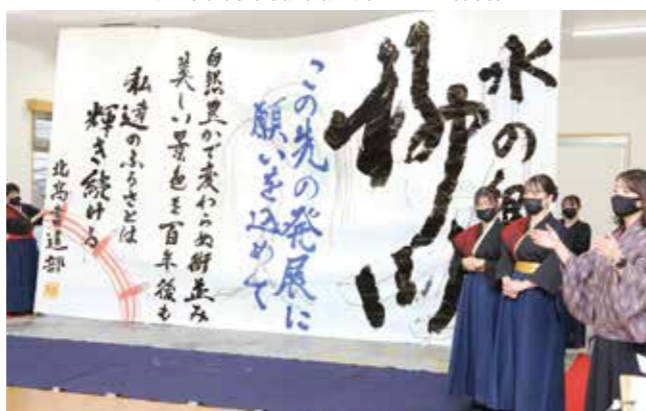 水の
柳川
この先の発展に
願いを込めて
自然豊かで変わらぬ街並み
美しい景色を百年後も
私達のふるさとは
輝き続ける
北高書道部